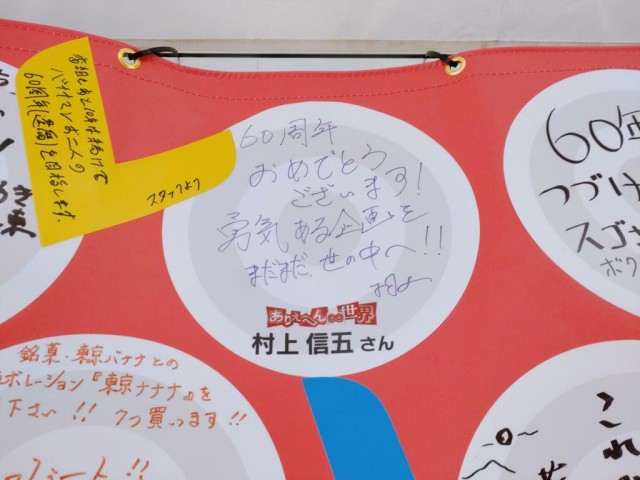 番組もあと10年は続けて
バナナマンお二人の
60周年(還暦)を目指します。
スタッフより
60周年
おめでとう
ございます!
勇気ある企画を
まだまだ、世の中へ!!
村上
ありえへん∞世界
村上 信五さん
60年
つづけ
スゴ
ボク
銘菓・東京バナナとの
ボレーション『東京ナナナ』を
下さい!! 7つ買います!!
これ